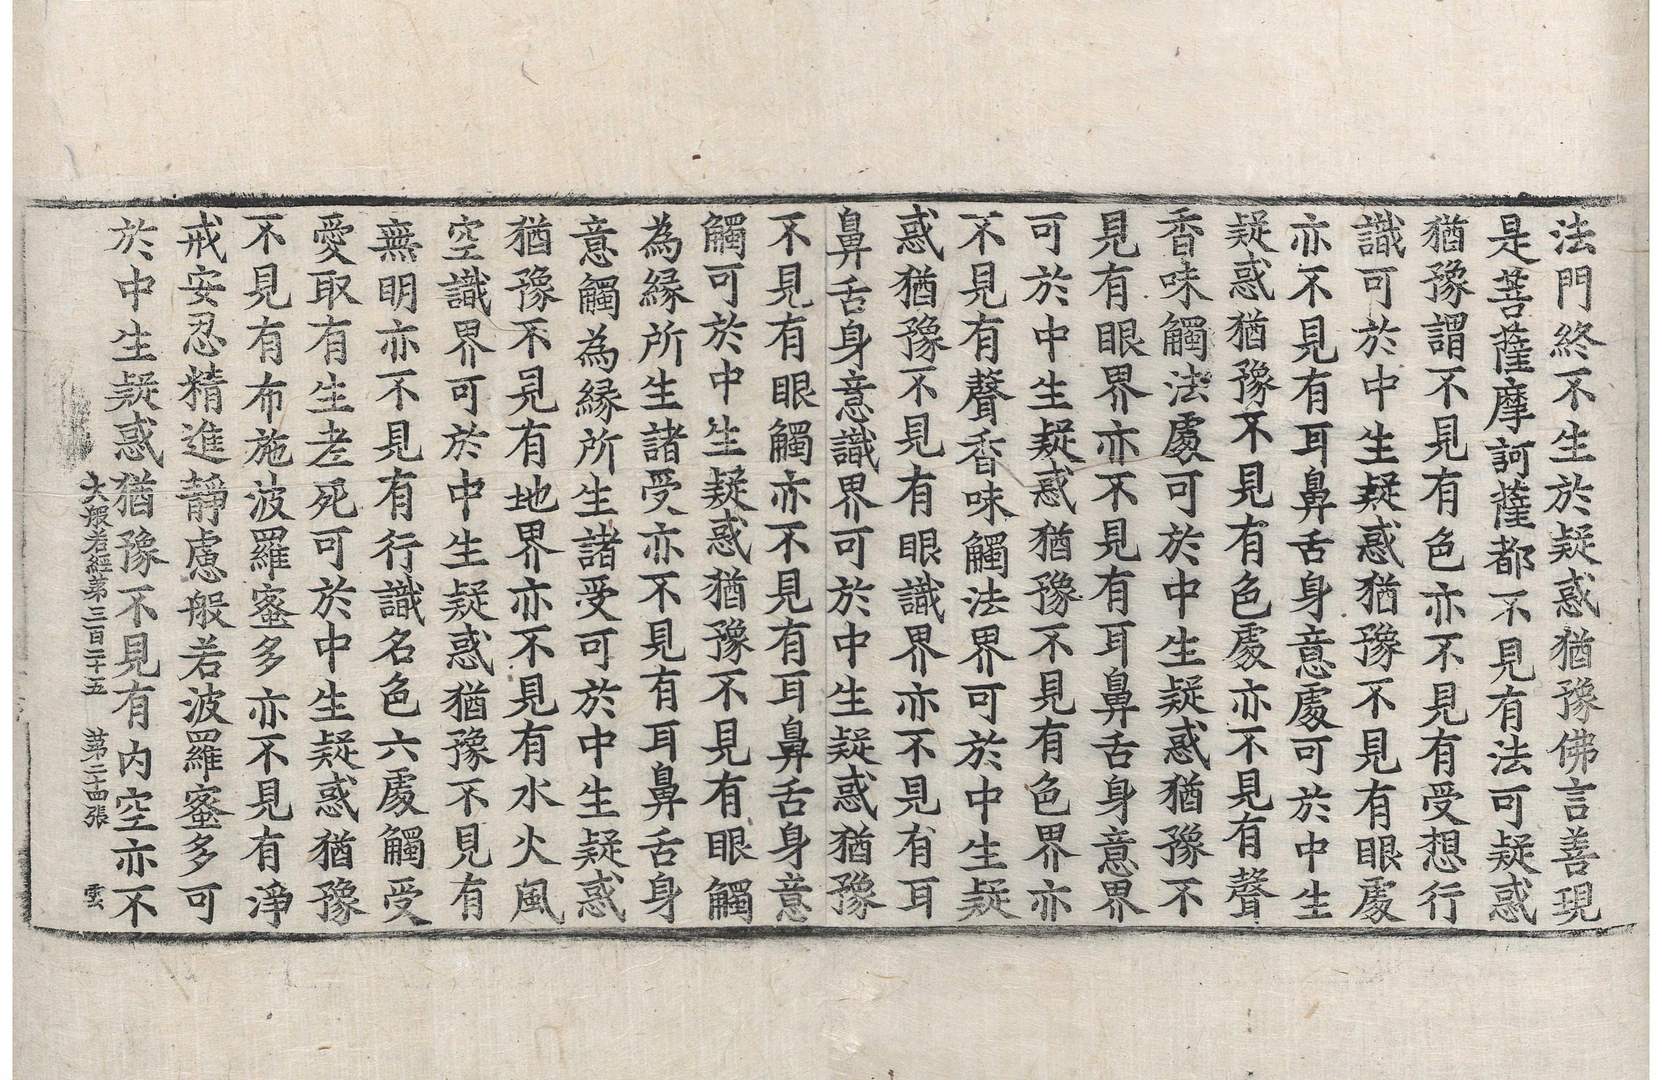 法門終不生於疑惑猶豫佛言善現
是菩薩摩訶薩都不見有法可疑惑
猶豫謂不見有色亦不見有受想行
識可於中生疑惑猶豫不見有眼處
亦不見有耳鼻舌身意處可於中生
疑惑猶豫不見有色處亦不見有聲
香味觸法處可於中生疑惑猶豫不
見有眼界亦不見有耳鼻舌身意界
可於中生疑惑猶豫不見有色界亦
不見有聲香味觸法界可於中生疑
惑猶豫不見有眼識界亦不見有耳
鼻舌身意識界可於中生疑惑猶豫
不見有眼觸亦不見有耳鼻舌身意
觸可於中生疑惑猶豫不見有眼觸
為緣所生諸受亦不見有耳鼻舌身
意觸為緣所生諸受可於中生疑惑
猶豫不見有地界亦不見有水火風
空識界可於中生疑惑猶豫不見有
無明亦不見有行識名色六處觸受
愛取有生老死可於中生疑惑猶豫
不見有布施波羅蜜多亦不見有淨
戒安忍精進靜慮般若波羅蜜多可
於中生疑惑猶豫不見有內空亦不
大般若經第三百二十五 第二十四張 雲